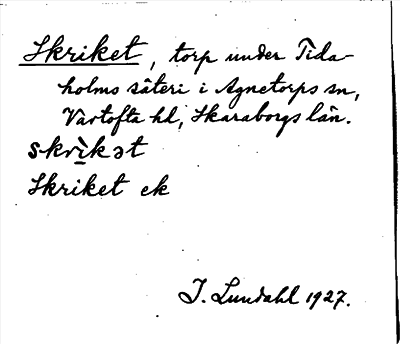 Skriket, torp under Tida-
holms säteri i Agnetorps sn,
Vartofta hd, Skaraborgs län.
skrìkət
Skriket ek
I. Lundahl 1927.